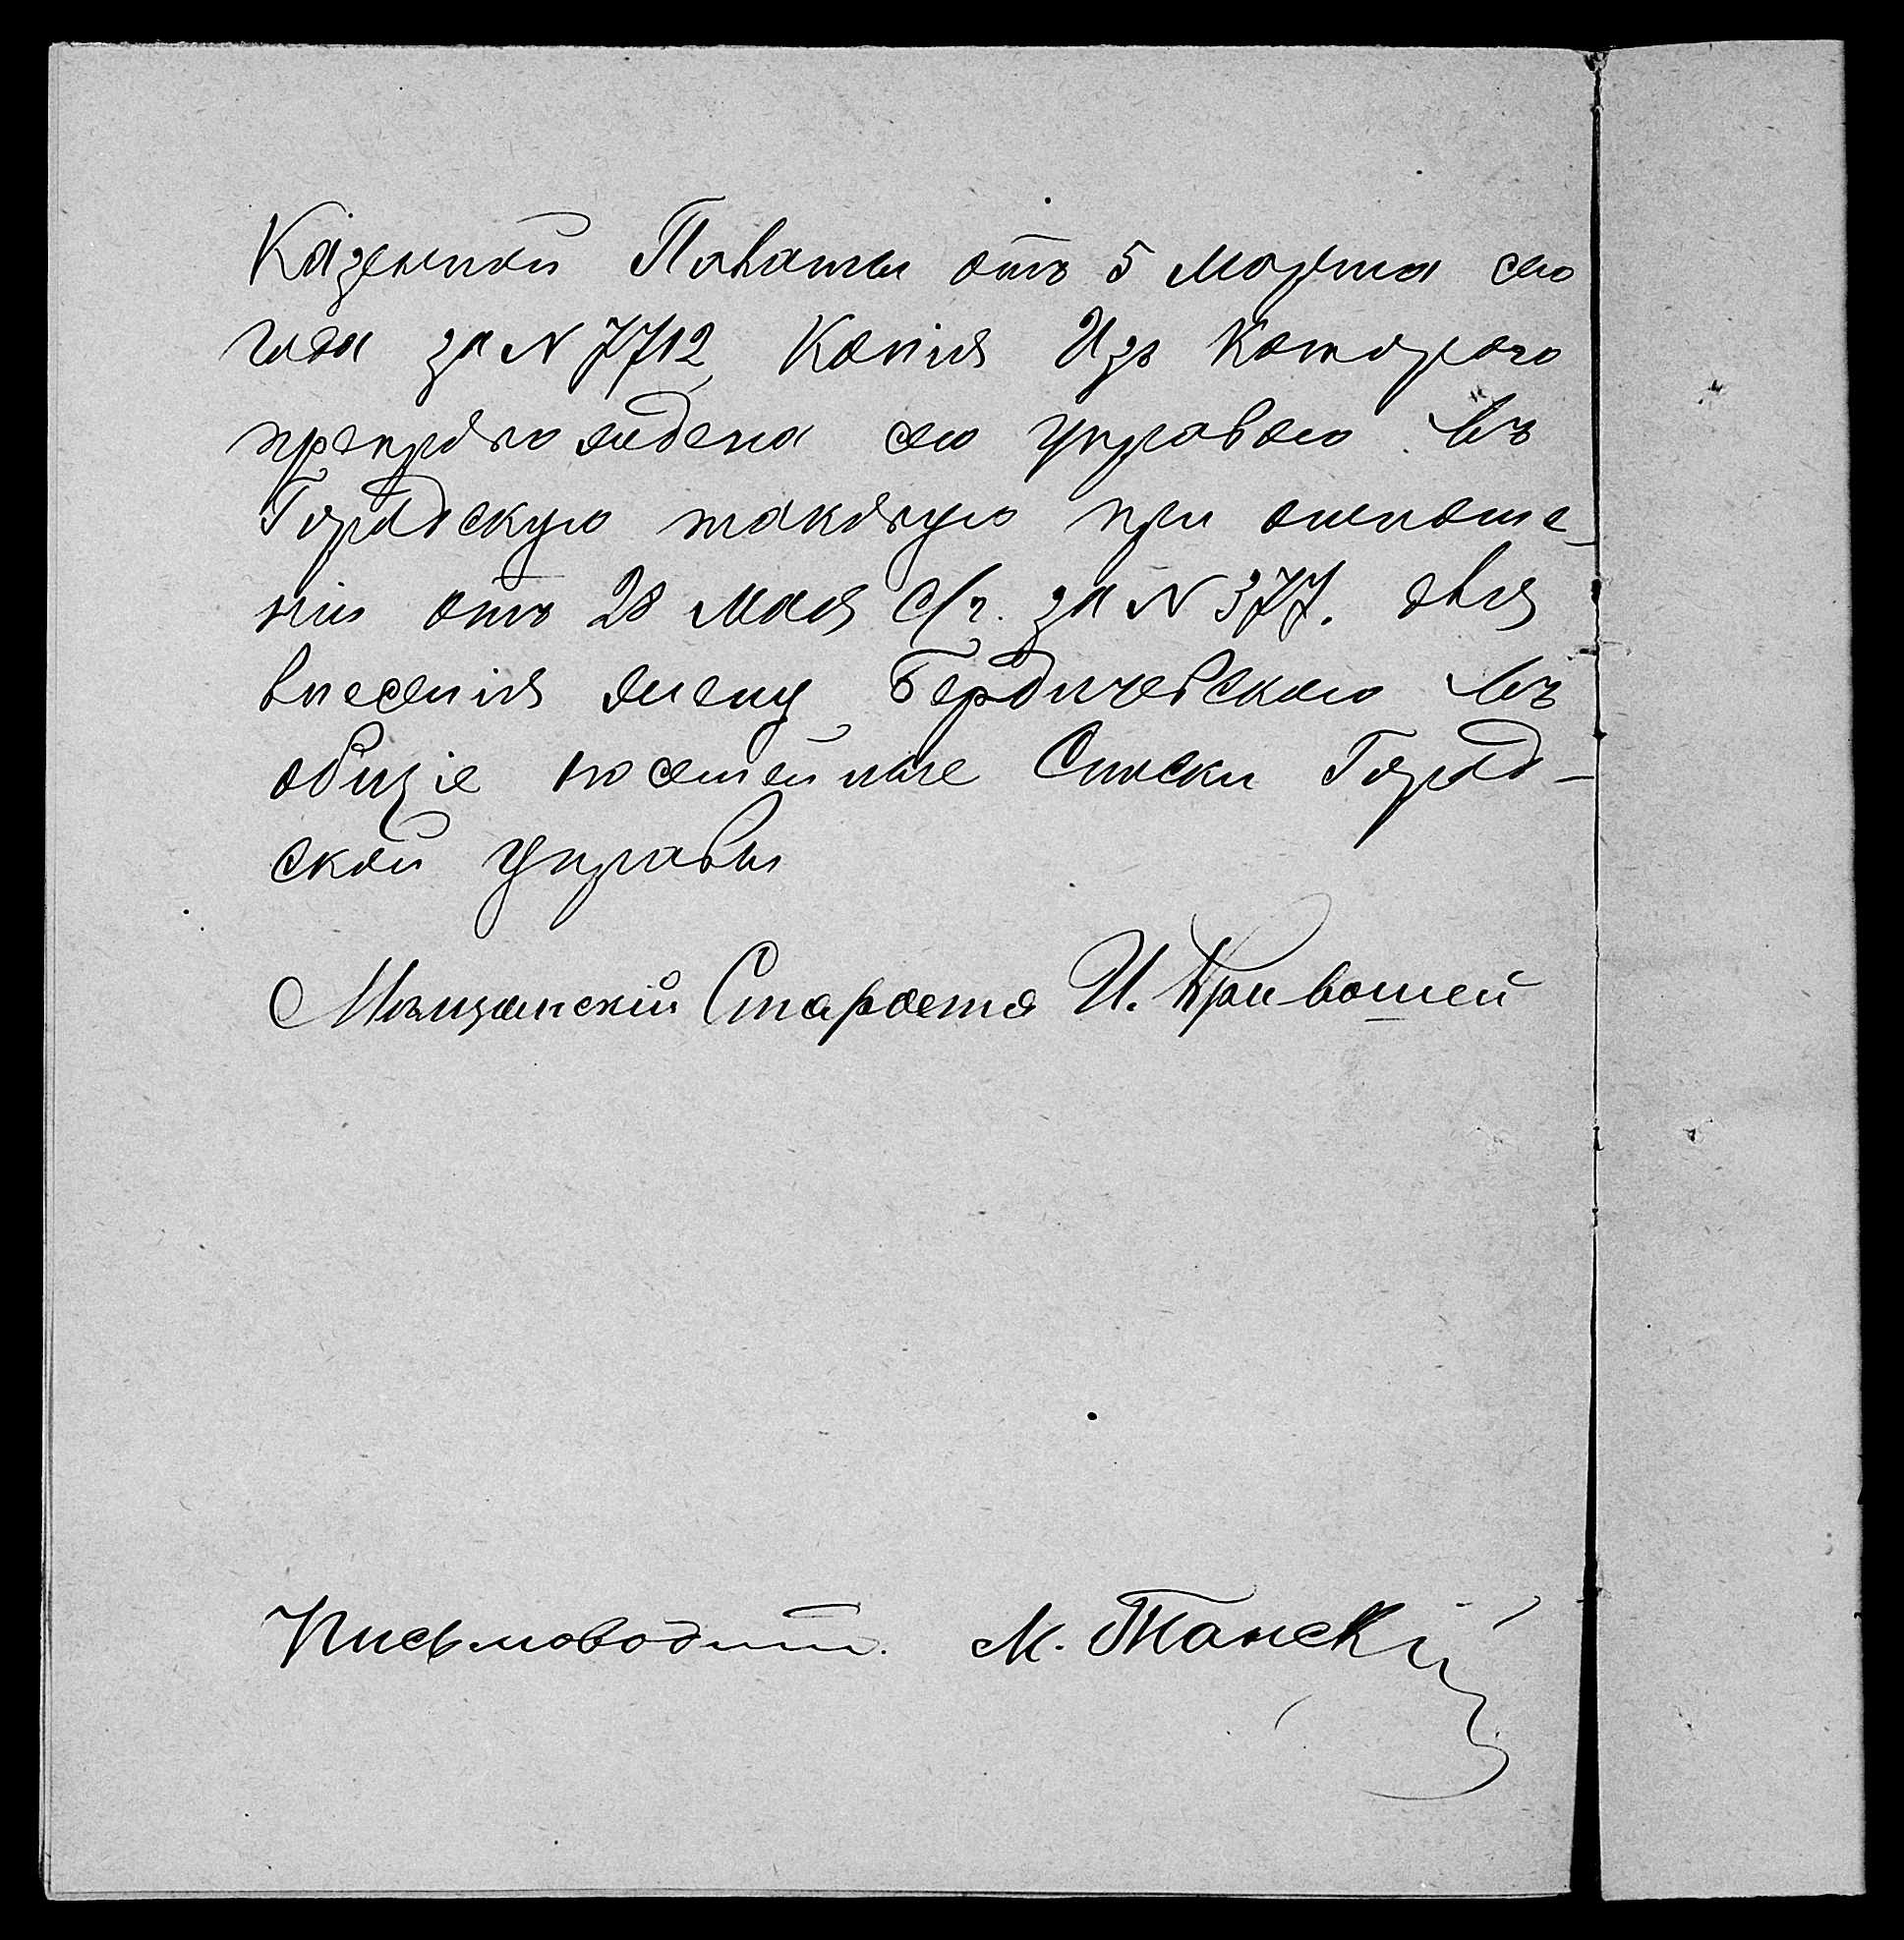 Казенной Палаты отъ 5 Марта сего
года за N 7712, Копія Изъ Котораго
препровождена сею управою въ
Городскую таковую при отноше-
ніи отъ 28 Мая с/г. за N 377. для
внесенія семи Бердичевскаго въ
общіе посемейные Списки Город-
ской управы
Мѣщанскій Староста И. Кривошей
Письмоводит. М. Танскій